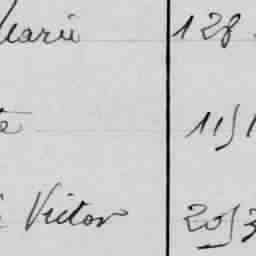 Marie 128
11/1
Victor 20/3